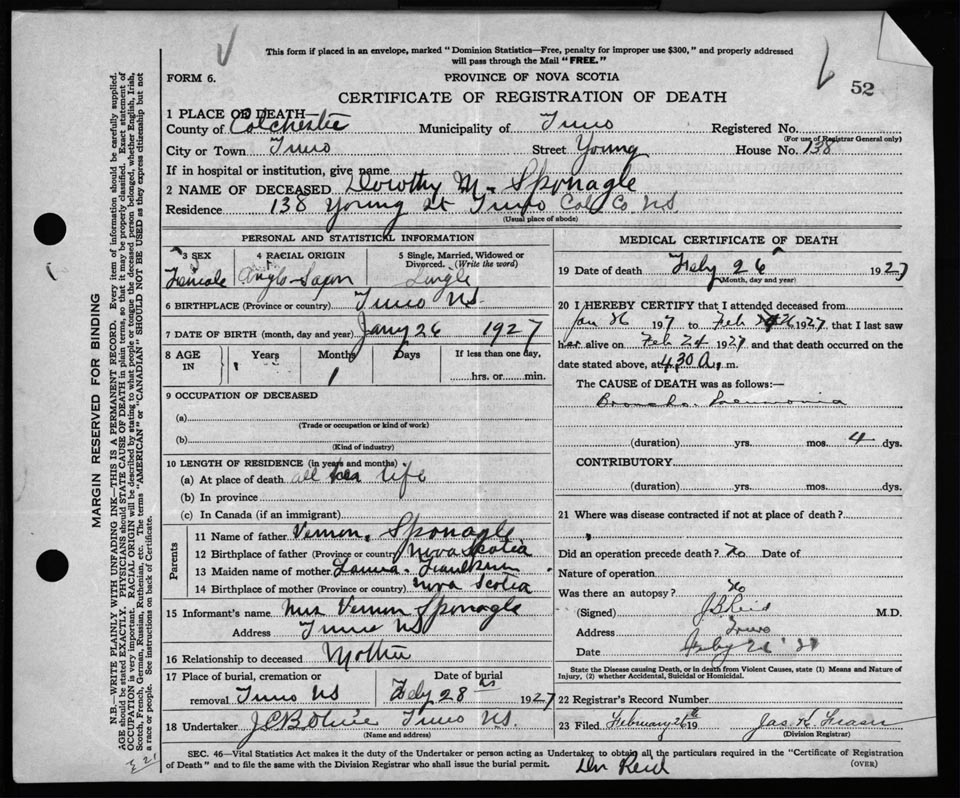 This form if placed in an envelope, marked "Dominion Statistics—Free, penalty for improper use $300," and properly addressed
will pass through the Mail "FREE."
FORM 6.
PROVINCE OF NOVA SCOTIA
52
CERTIFICATE OF REGISTRATION OF DEATH
1 PLACE OF DEATH
County of Colchester Municipality of Truro Registered No.
(For use of Registrar General only)
City or Town Truro Street Young House No. 138
If in hospital or institution, give name
2 NAME OF DECEASED Dorothy M. Sponagle
Residence 138 Young St Truro Col Co. NS
(Usual place of abode)
PERSONAL AND STATISTICAL INFORMATION
3 SEX 4 RACIAL ORIGIN 5 Single, Married, Widowed or
Divorced. (Write the word)
Female Anglo-Saxon Single
6 BIRTHPLACE (Province or country) Truro NS.
7 DATE OF BIRTH (month, day and year) Jany 26 1927
8 AGE IN Years Months Days If less than one day,
1 hrs. or min.
9 OCCUPATION OF DECEASED
(a)
(Trade or occupation or kind of work)
(b)
(Kind of industry)
10 LENGTH OF RESIDENCE (in years and months)
(a) At place of death all her life
(b) In province
(c) In Canada (if an immigrant)
Parents
11 Name of father Vernon Sponagle
12 Birthplace of father (Province or country) Nova Scotia
13 Maiden name of mother Laura
14 Birthplace of mother (Province or country) Nova Scotia
15 Informant's name Mrs Vernon Sponagle
Address Truro NS
16 Relationship to deceased Mother
17 Place of burial, cremation or Date of burial
removal Truro NS Feby 28 1927
18 Undertaker Truro NS.
(Name and address)
MEDICAL CERTIFICATE OF DEATH
19 Date of death Feby 26 1927
(Month, day and year)
20 I HEREBY CERTIFY that I attended deceased from
Jan 26 1927 to Feb 26 1927, that I last saw
her alive on Feb 24 1927 and that death occurred on the
date stated above, at 4.30 A. m.
The CAUSE OF DEATH was as follows:—
Broncho Pneumonia
(duration) yrs. mos. 4 dys.
CONTRIBUTORY
(duration) yrs. mos. dys.
21 Where was disease contracted if not at place of death?
Did an operation precede death? No Date of
Nature of operation
Was there an autopsy? No
(Signed) J B Reid M.D.
Address Truro
Date Feby 26 '27
State the Disease causing Death, or in death from Violent Causes, state (1) Means and Nature of
Injury, (2) whether Accidental, Suicidal or Homicidal.
22 Registrar's Record Number
23 Filed February 26th 19 Jas. K. Fraser
(Division Registrar)
SEC. 46—Vital Statistics Act makes it the duty of the Undertaker or person acting as Undertaker to obtain all the particulars required in the "Certificate of Registration
of Death" and to file the same with the Division Registrar who shall issue the burial permit.
Dr Reid
(OVER)
MARGIN RESERVED FOR BINDING
N.B.—WRITE PLAINLY WITH UNFADING INK—THIS IS A PERMANENT RECORD. Every item of information should be carefully supplied.
AGE should be stated EXACTLY. PHYSICIANS should STATE CAUSE OF DEATH in plain terms, so that it may be properly classified. Exact statement of
OCCUPATION is very important. RACIAL ORIGIN will be described by stating to what people or tongue the deceased person belonged, whether English, Irish,
Scotch, French, German, Russian, Ruthenian, etc. The terms "AMERICAN" or "CANADIAN" SHOULD NOT BE USED as they express citizenship but not
a race or people. See instructions on back of Certificate.